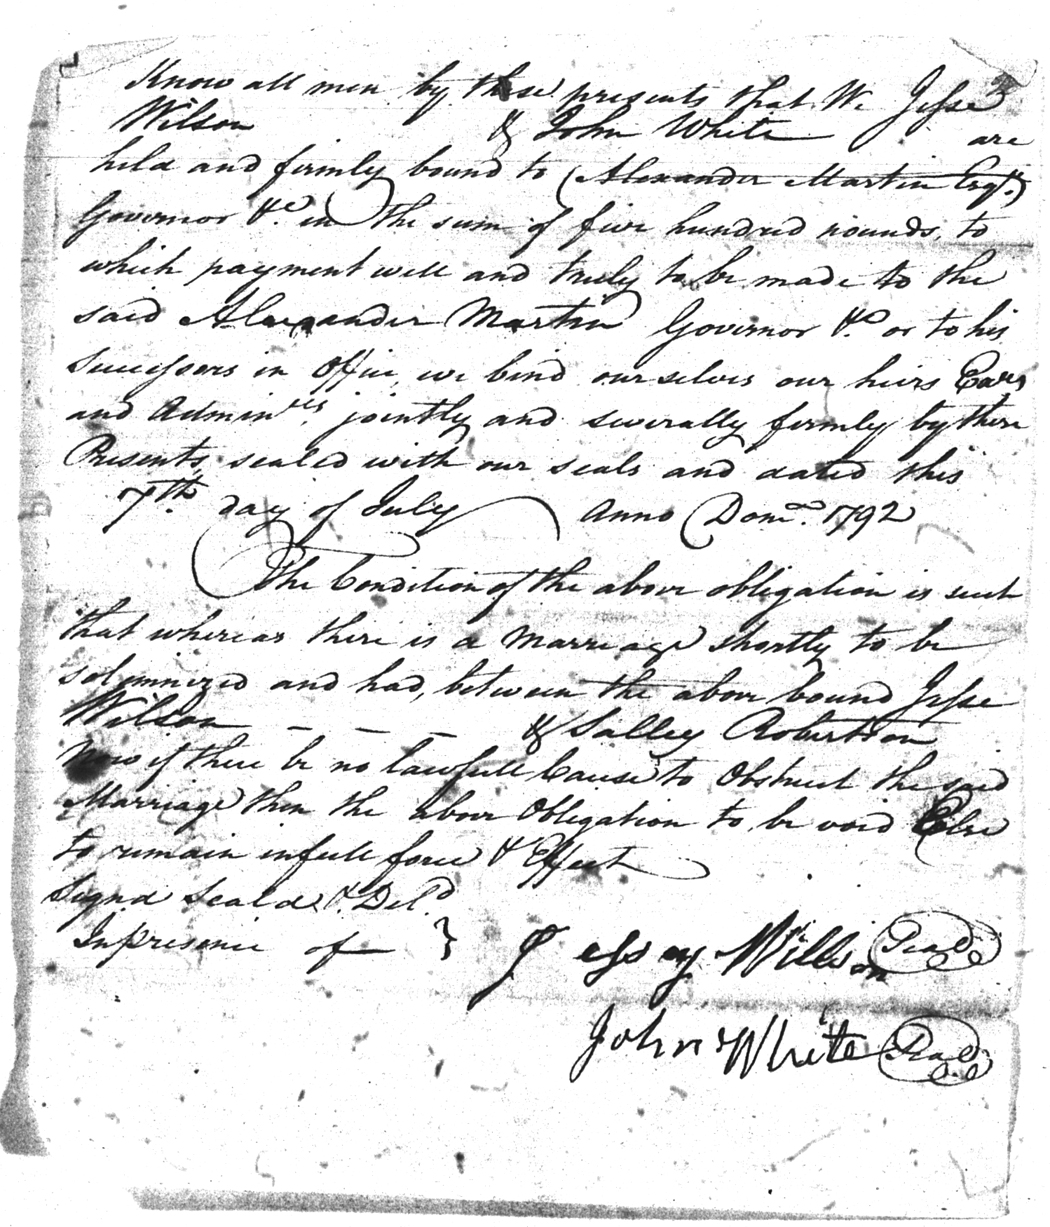 Know all men by these presents that We Jesse
Wilson & John White are
held and firmly bound to (Alexander Martin Esqr.)
Governor &c. in the sum of five hundred pounds, to
which payment well and truly to be made to the
said Alexander Martin Governor &c. or to his
Successors in Office, we bind ourselves our heirs Exrs
and Adminres. jointly and severally firmly by these
Presents, sealed with our seals and dated this
7th. day of July Anno Domo. 1792
The Condition of the above obligation is such
that whereas there is a Marriage shortly to be
solemnized and had, between the above bound Jesse
Wilson – – – – & Salley Robertson
Now if there be no lawfull Cause to Obstruct the said
Marriage then the above Obligation to be void Else
to remain in full force & Effect
Signd Seald & Deld.
In presence of } Jessey Willson Seal
John White Seal